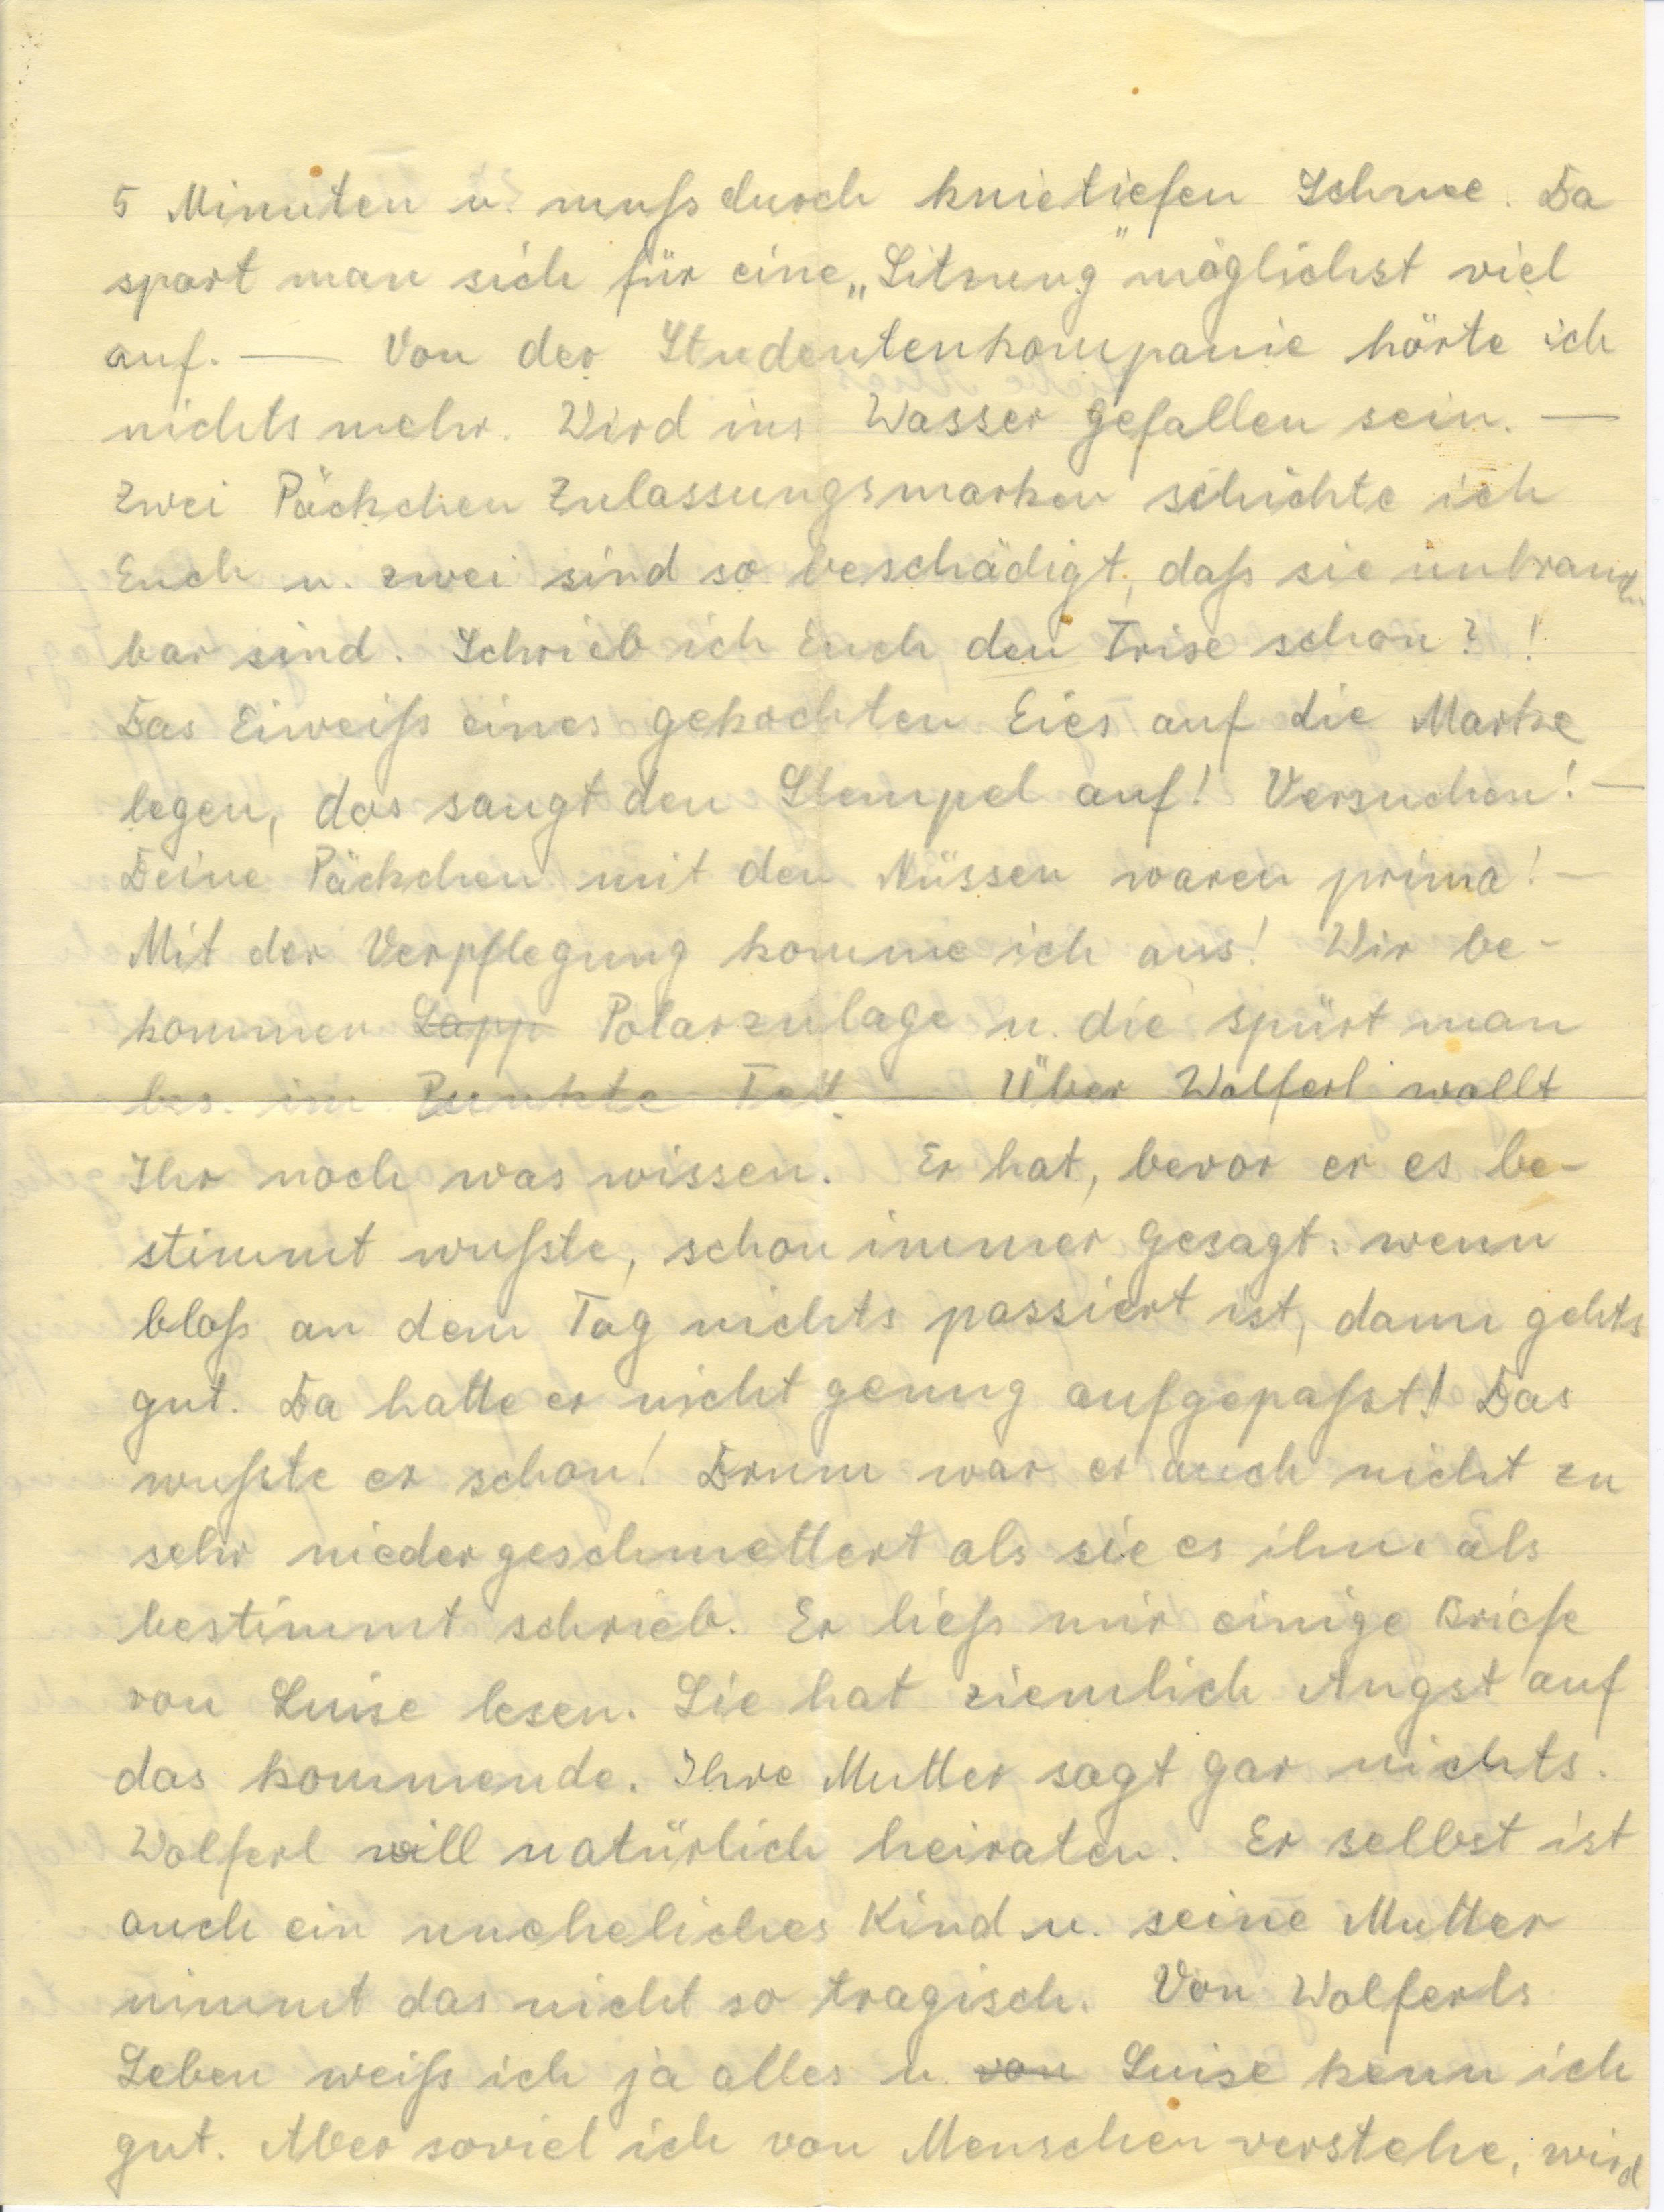 5 Minuten u. muß durch knietiefen Schnee. Da
spart man sich für eine „Sitzung" möglichst viel
auf. — Von der Studentenkompanie hörte ich
nichts mehr. Wird ins Wasser gefallen sein. —
Zwei Päckchen Zulassungsmarken schickte ich
Euch u. zwei sind so beschädigt, daß sie unbrauch-
bar sind. Schrieb ich Euch den Trise schon? !
Das Eiweiß eines gekochten Eies auf die Marke
legen, das saugt den Stempel auf! Versuchen! —
Deine Päckchen mit den Nüssen waren prima! —
Mit der Verpflegung komme ich aus! Wir be-
kommen Lapp Polarzulage u. die spürt man
bes. im Punkte Fett. — Über Wolferl wollt
Ihr noch was wissen. Er hat, bevor er es be-
stimmt wußte, schon immer gesagt: wenn
bloß an dem Tag nichts passiert ist, dann gehts
gut. Da hatte er nicht genug aufgepaßt! Das
wußte er schon! Drum war er auch nicht zu
sehr niedergeschmettert als sie es ihm als
bestimmt schrieb. Er ließ mir einige Briefe
von Luise lesen. Sie hat ziemlich Angst auf
das kommende. Ihre Mutter sagt gar nichts.
Wolferl will natürlich heiraten. Er selbst ist
auch ein uneheliches Kind u. seine Mutter
nimmt das nicht so tragisch. Von Wolferls
Leben weiß ich ja alles u. von Luise kenn ich
gut. Aber soviel ich von Menschen verstehe, wird